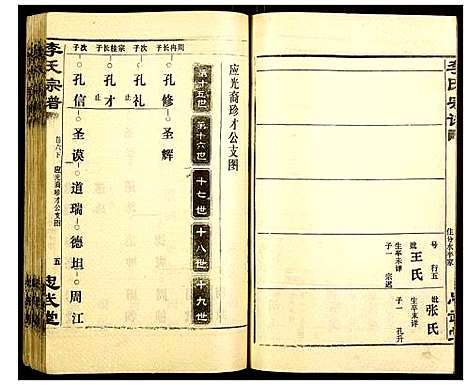 李氏宗谱
号 行五
妣 王氏
生卒未详
子一 宗迟
住分水卒家
妣 张氏
生卒未详
子一 孔升
应光裔珍才公支图
第十五世 第十六世 十七世 十八世 十九世
孔修 圣辉
孔礼
孔才 止
孔信 圣谟 道瑞 德坦 周江
长子
次子
李氏宗谱
卷六下 应光裔珍才公支图 五